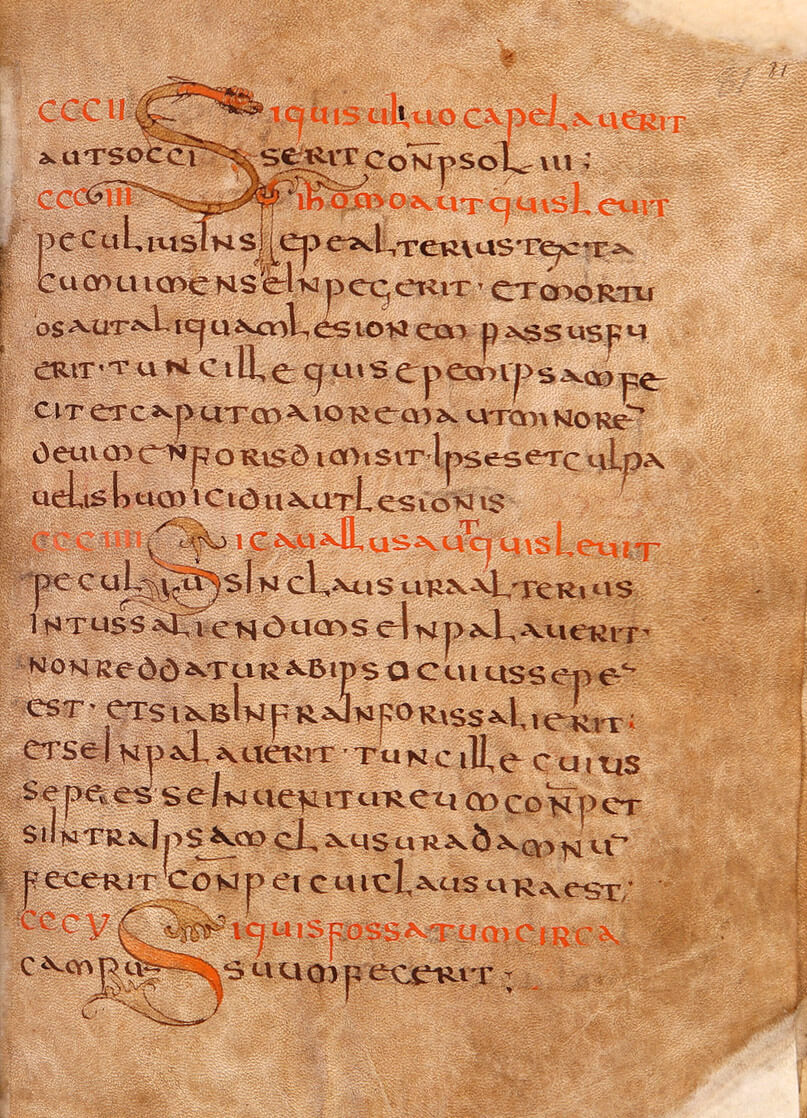 21
CCCII Si quis uluo capelauerit
aut socciserit conp sol iii;
CCCIII Si homo aut quisleuit
peculius in sepe alterius texta
cum uimen se inpegerit · et mortu
os aut aliquam lesionem passus fu
erit · tunc ille qui sepem ipsam fe
cit et caput maiorem aut minore
de uimen foris dimisit · ipse set culpa
uelis humicidii aut lesionis
CCCIIII Si cauallus aut quisleuit
peculius in clausura alterius
intus saliendum se inpalauerit ·
non reddatur ab ipso cuius sepe
est · et si ab infra in foris salierit ;
et se inpalauerit · tunc ille cuius
sepe esse inuenitur eum conpet
si intra ipsam clausura damnu
fecerit conp ei cui clausura est ;
CCCV Si quis fossatum circa
campus suum fecerit ;